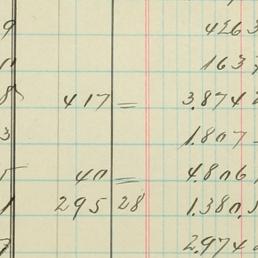 9 4263
11 1637
8 417 = 3.874 2
3 1.807
5 40 = 4.806
1 295 28 1.380.5
7 2.974